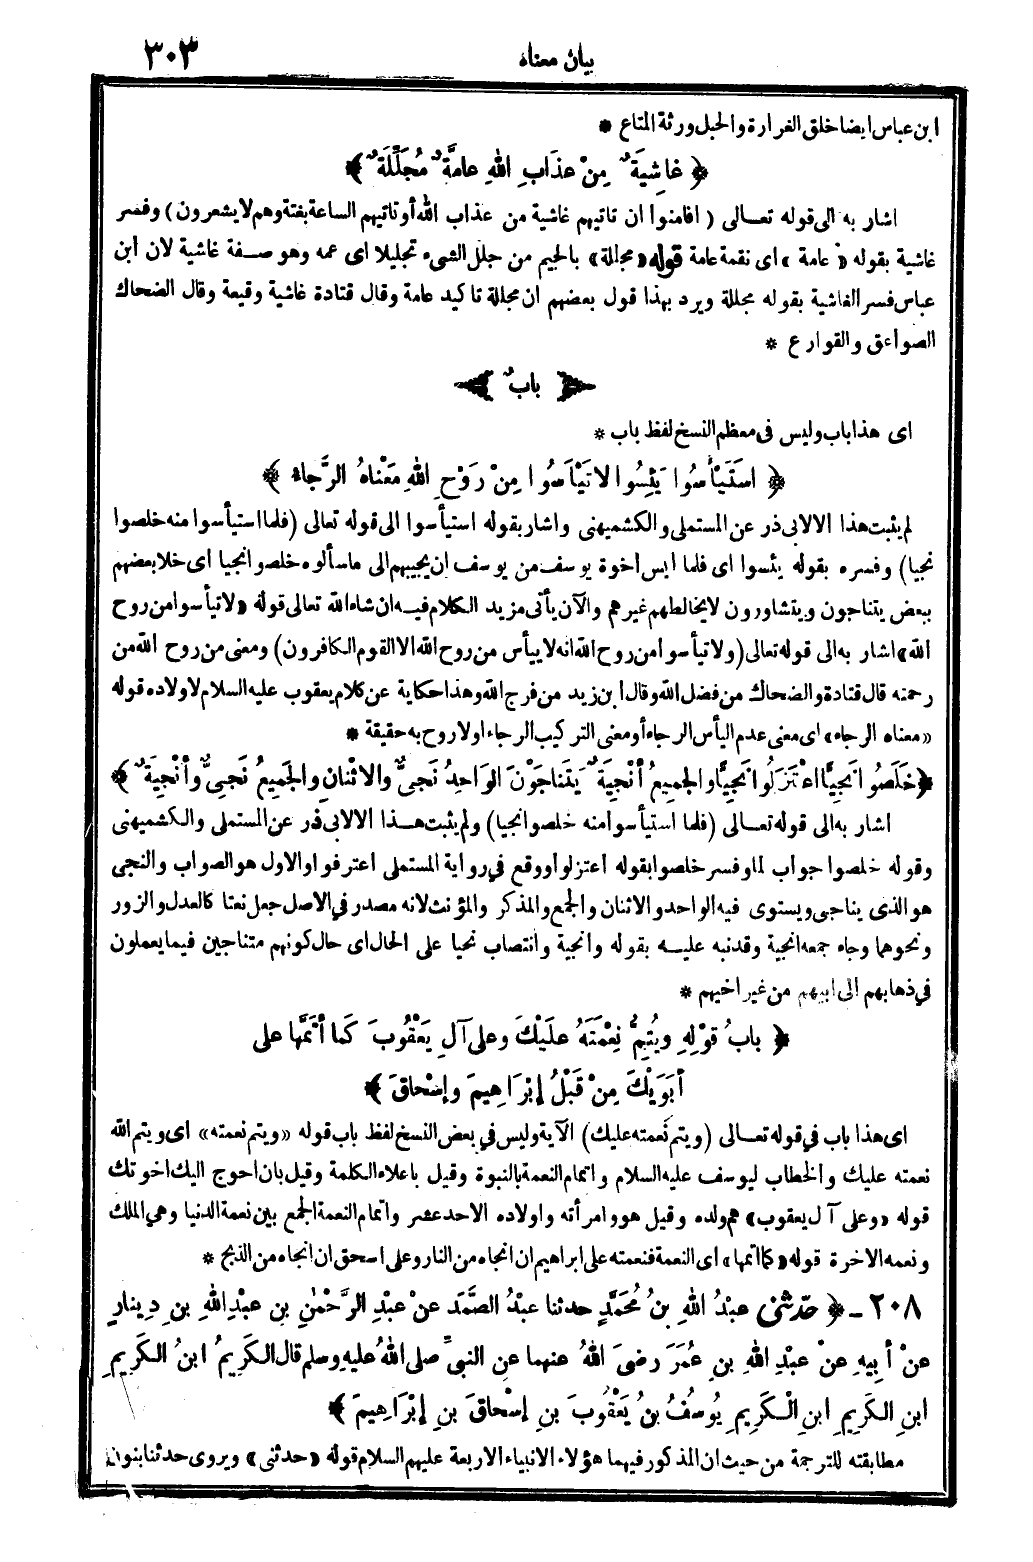 بيان معناه ٣٠٣
ابن عباس ايضا خلق الغرارة والحبل ورثة المتاع *
﴿ غاشِيَةٌ مِنْ عذَابِ اللهِ عامَّةٌ مُجَلِّلَةٌ ﴾
اشار به الى قوله تعـالى ( افامنوا ان تاتيهم غاشية من عذاب الله أو تاتيهم الساعة بغتة وهم لا يشعرون ) وفسر
غاشية بقوله « عامة » اى نقمة عامة قوله «مجللة» بالجيم من جلل الشىء تجليلا اى عمه وهو صـفة غاشية لان ابن
عباس فسر الغاشية بقوله مجللة ويرد بهذا قول بعضهم ان مجللة تاكيد عامة وقال قتادة غاشية وقيعة وقال الضحاك
الصواعق والقوارع *
باب
اى هذا باب وليس فى معظم النسخ لفظ باب *
﴿ اسْتَيْأَسُوا يَئِسُوا لا تَيْأَسُوا مِنْ رَوْحِ اللهِ مَعْناهُ الرَّجاءُ ﴾
لم يثبت هذا الا لابى ذر عن المستملى والكشميهنى واشار بقوله استيأسوا الى قوله تعالى (فلما استيأسوا منه خلصوا
نجيا) وفسره بقوله يئسوا اى فلما ايس اخوة يوسف من يوسف ان يجيبهم الى ما سألوه خلصوا نجيا اى خلا بعضهم
ببعض يتناجون ويتشاورون لا يخالطهم غيرهم والآن يأتى مزيد الكلام فيـه ان شاء الله تعالى قوله «لا تيأسوا من روح
الله» اشار به الى قوله تعالى (ولا تيأسوا من روح الله انه لا ييأس من روح الله الا القوم الكافرون) ومعنى من روح الله من
رحمته قال قتادة والضحاك من فضل الله وقال ابن زيد من فرج الله وهذا حكاية عن كلام يعقوب عليه السلام لاولاده قوله
«معناه الرجاء» اى معنى عدم اليأس الرجاء أو معنى التركيب الرجاء اولا روح به حقيقة *
﴿ خَلَصُوا نَجِيًّا اعْتَزَلُوا نَجِيًّا والجميعُ أنْجِيَةٌ يَتَناجَوْنَ الوَاحِدُ نَجِىٌّ والاثْنانِ والجَمِيعُ نَجِىٌّ وأنْجِيَةٌ ﴾
اشار به الى قوله تعـالى (فلما استيأسوا منه خلصوا نجيا) ولم يثبت هـذا الا لابى ذر عن المستملى والكشميهنى
وقوله خلصوا جواب لما وفسر خلصوا بقوله اعتزلوا ووقع في رواية المستملى اعترفوا والاول هو الصواب والنجى
هو الذى يناجى ويستوى فيه الواحد والاثنان والجمع والمذكر والمؤنث لانه مصدر في الاصل جعل نعتا كالعدل والزور
ونحوهما وجاء جمعه انجية وقد نبه عليـه بقوله وانجية وانتصاب نجيا على الحال اى حال كونهم متناجين فيما يعملون
في ذهابهم الى ابيهم من غير اخيهم *
﴿ بابُ قوْلِهِ ويُتِمُّ نِعْمَتَهُ علَيْكَ وعلى آلِ يَعْقُوبَ كَما أتَمَّها على
أبَوَيْكَ مِنْ قَبْلُ إبْرَاهِيمَ وإسْحاقَ ﴾
اى هذا باب في قوله تعـالى (ويتم نعمته عليك) الآية وليس في بعض النسخ لفظ باب قوله «ويتم نعمته» اى ويتم الله
نعمته عليك والخطاب ليوسف عليه السلام واتمام النعمة بالنبوة وقيل باعلاء الكلمة وقيل بان احوج اليك اخوتك
قوله «وعلى آل يعقوب» هم ولده وقيل هو وامرأته واولاده الاحد عشر واتمام النعمة الجمع بين نعمة الدنيا وهي الملك
ونعمه الاخرة قوله «كما اتمها» اى النعمة فنعمته على ابراهيم ان انجاه من النار وعلى اسحق ان انجاه من الذبح *
٢٠٨ ـ ﴿ حدّثنى عبْدُ اللهِ بنُ مُحَمَّدٍ حدثنا عبْدُ الصَّمَدِ عنْ عبْدِ الرَّحْمٰنِ بنِ عبْدِ اللهِ بنِ دِينارٍ
عنْ أبِيهِ عنْ عبْدِ اللهِ بنِ عُمَرَ رضىَ اللهُ عنهما عنِ النبىِّ صلى اللهُ عليهِ وسلم قال الكَرِيمُ ابنُ الكَرِيمِ
ابنِ الكَرِيمِ ابنِ الْكَرِيمِ يُوسُفُ بنُ يَعْقُوبَ بنِ إسْحاقَ بنِ إبْرَاهِيمَ ﴾
مطابقته للترجمة من حيث ان المذكور فيهما هؤلاء الانبياء الاربعة عليهم السلام قوله «حدثنى» ويروى حدثنا بنون